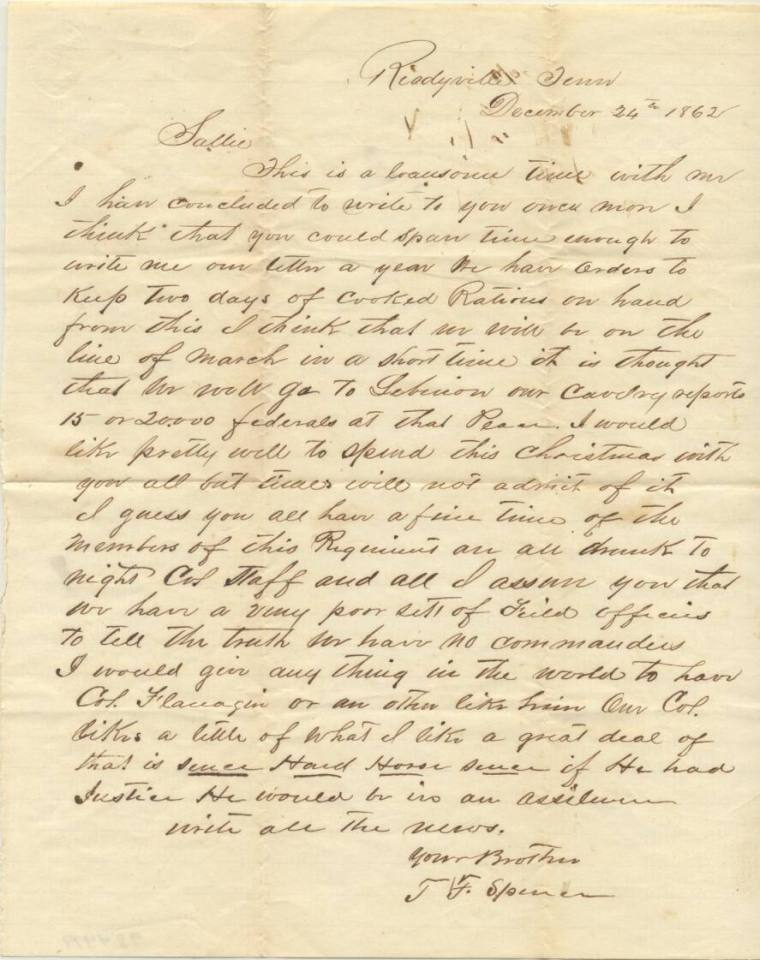 Readyville Tenn
December 24th 1862
Sallie
This is a lonsome time with me
I have concluded to write to you once more I
think that you could spare time enough to
write me one letter a year We have orders to
Keep two days of cooked Rations on hand
from this I think that we will be on the
line of march in a short time it is thought
that we will go to Lebinon our Cavelry reports
15 or 20.000 federals at that Place. I would
like pretty well to spend this Christmas with
you all but times will not admit of it
I guess you all have a fine time of the
members of this Regiment are all drunk to
night Col Staff and all I assure you that
we have a very poor sett of Feild officers
to tell the truth we have no commanders
I would give any thing in the world to have
Col. Flanagin or an other like him Our Col.
likes a little of what I like a great deal of
that is sence Hard Horse sence if He had
Justice He would be in an assilum
write all the news.
Your Brother
T F. Spence